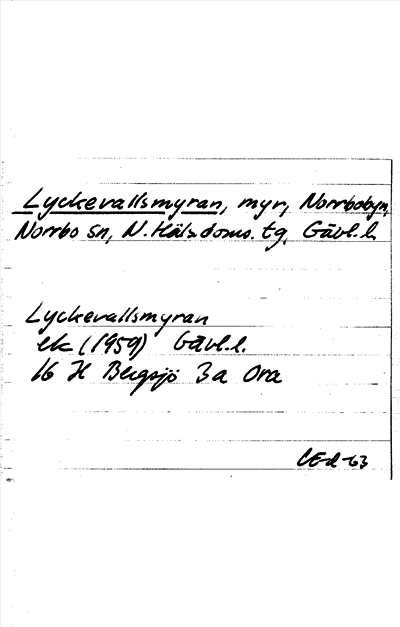 Lyckevallsmyran, myr, Norrbobyn,
Norrbo sn, N. Hälsdoms. tg, Gävl.l.
Lyckevallsmyran
ek (1959) Gävl.l.
16 H Bergsjö 3a Ora
CEd-63